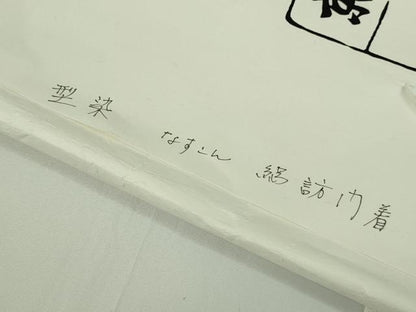 型染 なすこん 絽訪门着